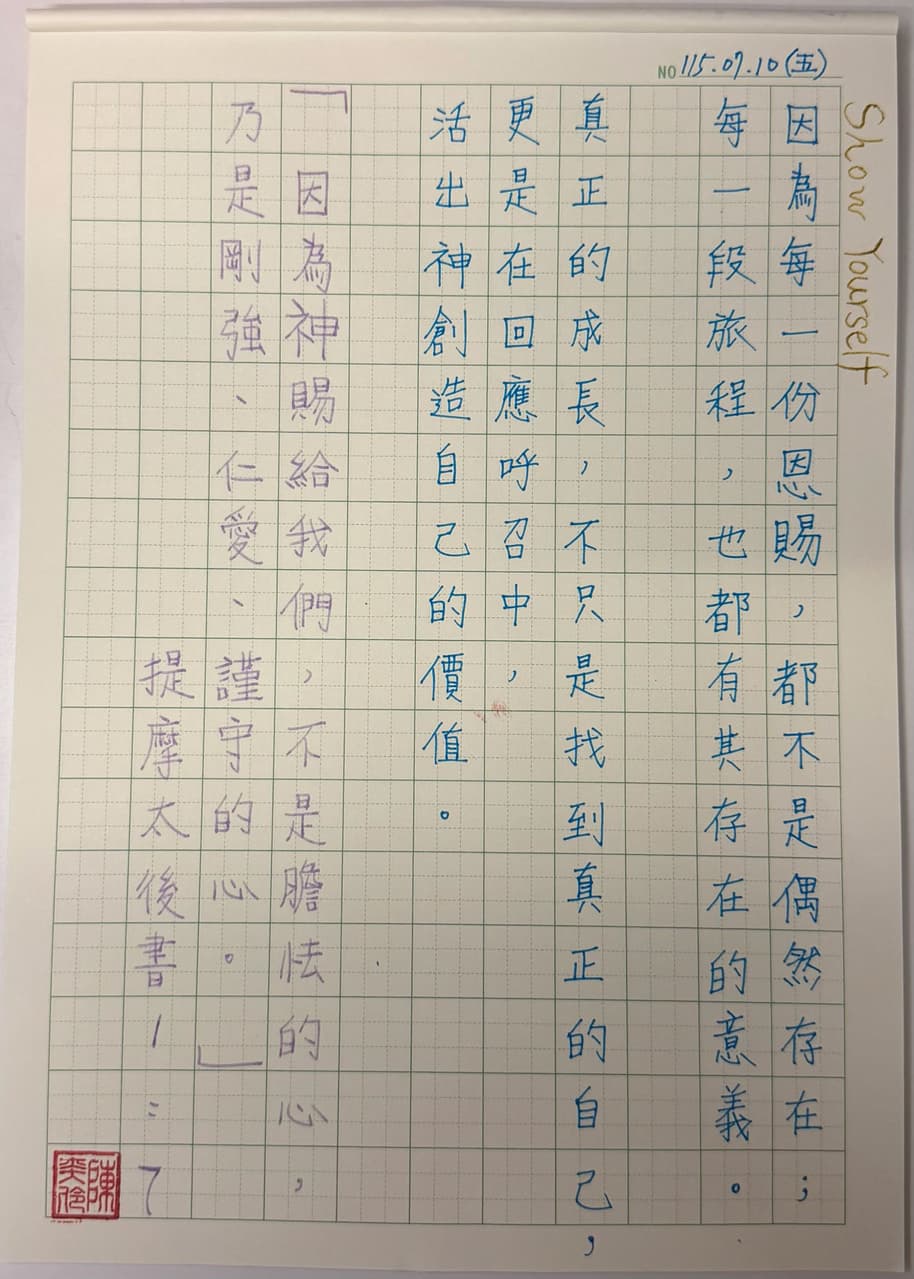 NO 115.07.10(五)
Show Yourself
因為每一份恩賜，都不是偶然存在；
每一段旅程，也都有其存在的意義。
真正的成長，不只是找到真正的自己，
更是在回應呼召中，
活出神創造自己的價值。
「因為神賜給我們，不是膽怯的心，
乃是剛強、仁愛、謹守的心。」
提摩太後書1:7
陳